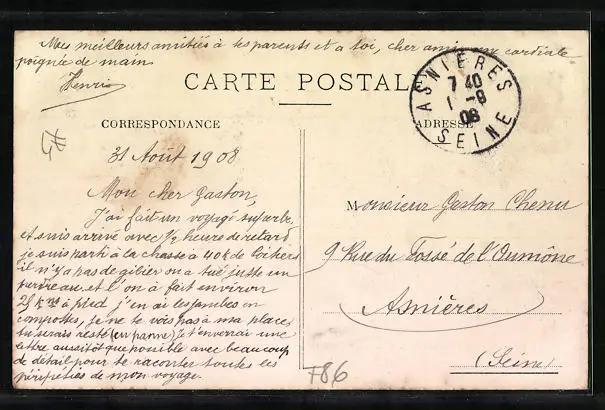 Mes meilleurs amitiés à tes parents et a toi, cher ami, un cordiale
poignée de main
Henri
CARTE POSTALE
ASNIÈRES
7 40
1 -9
08
SEINE
CORRESPONDANCE
ADRESSE
31 Août 1908
Mon cher Gaston,
J'ai fait un voyage superbe
et suis arrivé avec 1/2 heure de retard
je suis parti à la chasse à 40k de Poitiers
il n'y a pas de gibier on a tué juste un
perdreau et l'on à fait environ
25 k à pied j'en ai les jambes en
compottes, je ne te vois pas à ma place
tu serais resté (en panne) je t'enverrai une
lettre aussitôt que possible avec beaucoup
de détail pour te raconter toutes les
péripéties de mon voyage.
Monsieur Gaston Chenu
9 Rue du Fossé de l'Aumône
Asnières
(Seine)
F86